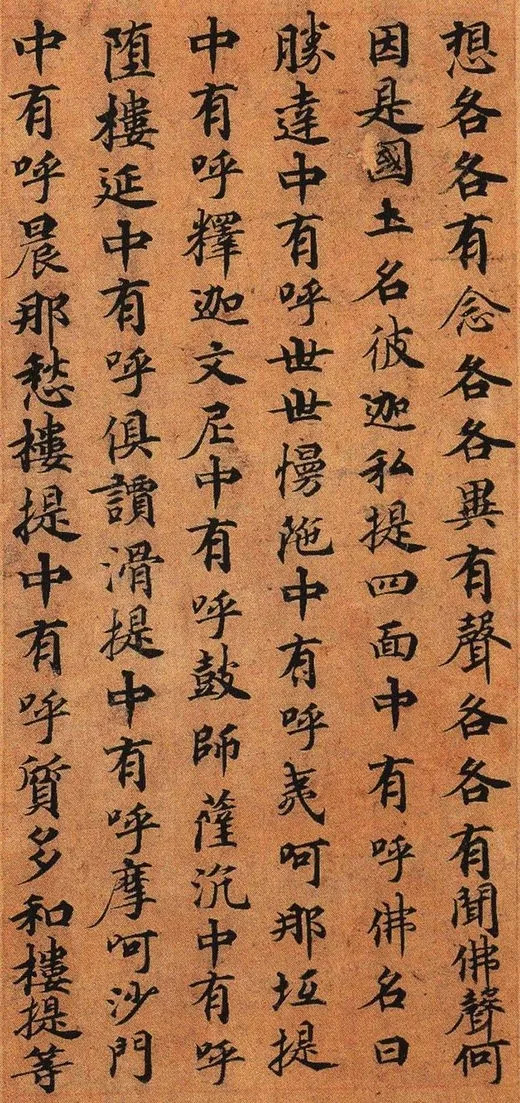 想各各有念各各異有聲各各有聞佛聲何
因是國土名彼迦私提四面中有呼佛名曰
勝達中有呼世世慢陁中有呼夷呵那坻提
中有呼釋迦文尼中有呼鼓師薩沉中有呼
墮樓延中有呼俱讀滑提中有呼摩呵沙門
中有呼晨那愁樓提中有呼質多和樓提等